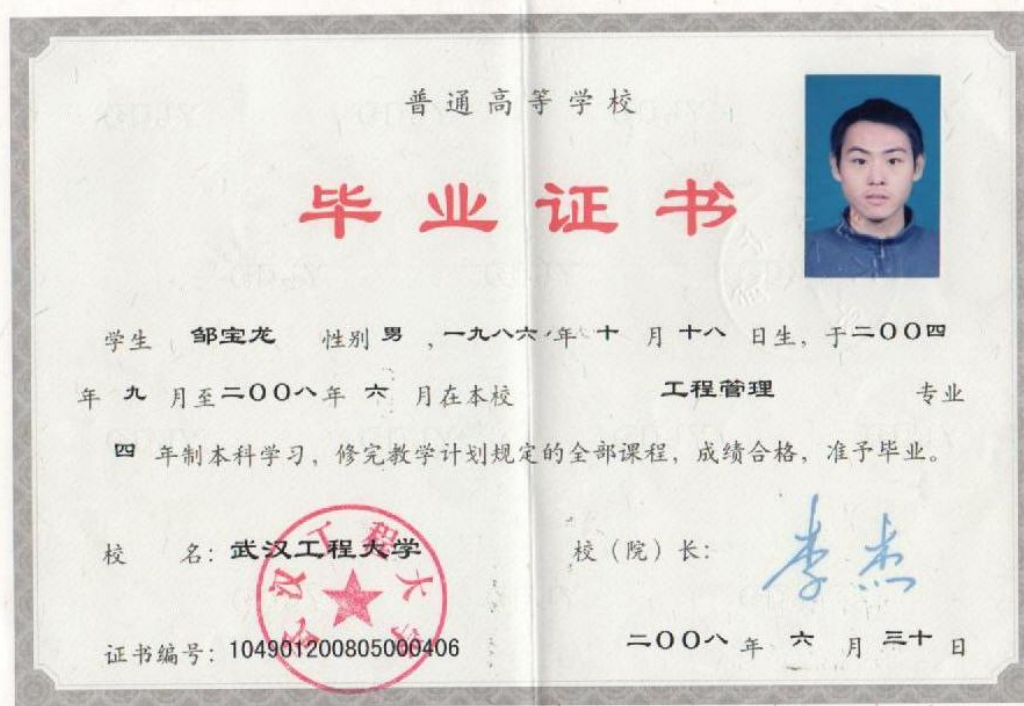 普通高等学校
毕业证书
学生 邹宝龙 性别 男 ,一九八六年 十 月 十八 日生, 于二〇〇四
年 九 月至二〇〇八年 六 月在本校 工程管理 专业
四 年制本科学习, 修完教学计划规定的全部课程, 成绩合格, 准予毕业。
校 名: 武汉工程大学 校(院)长: 李杰
武汉工程大学
证书编号: 104901200805000406 二〇〇八 年 六 月 三十 日